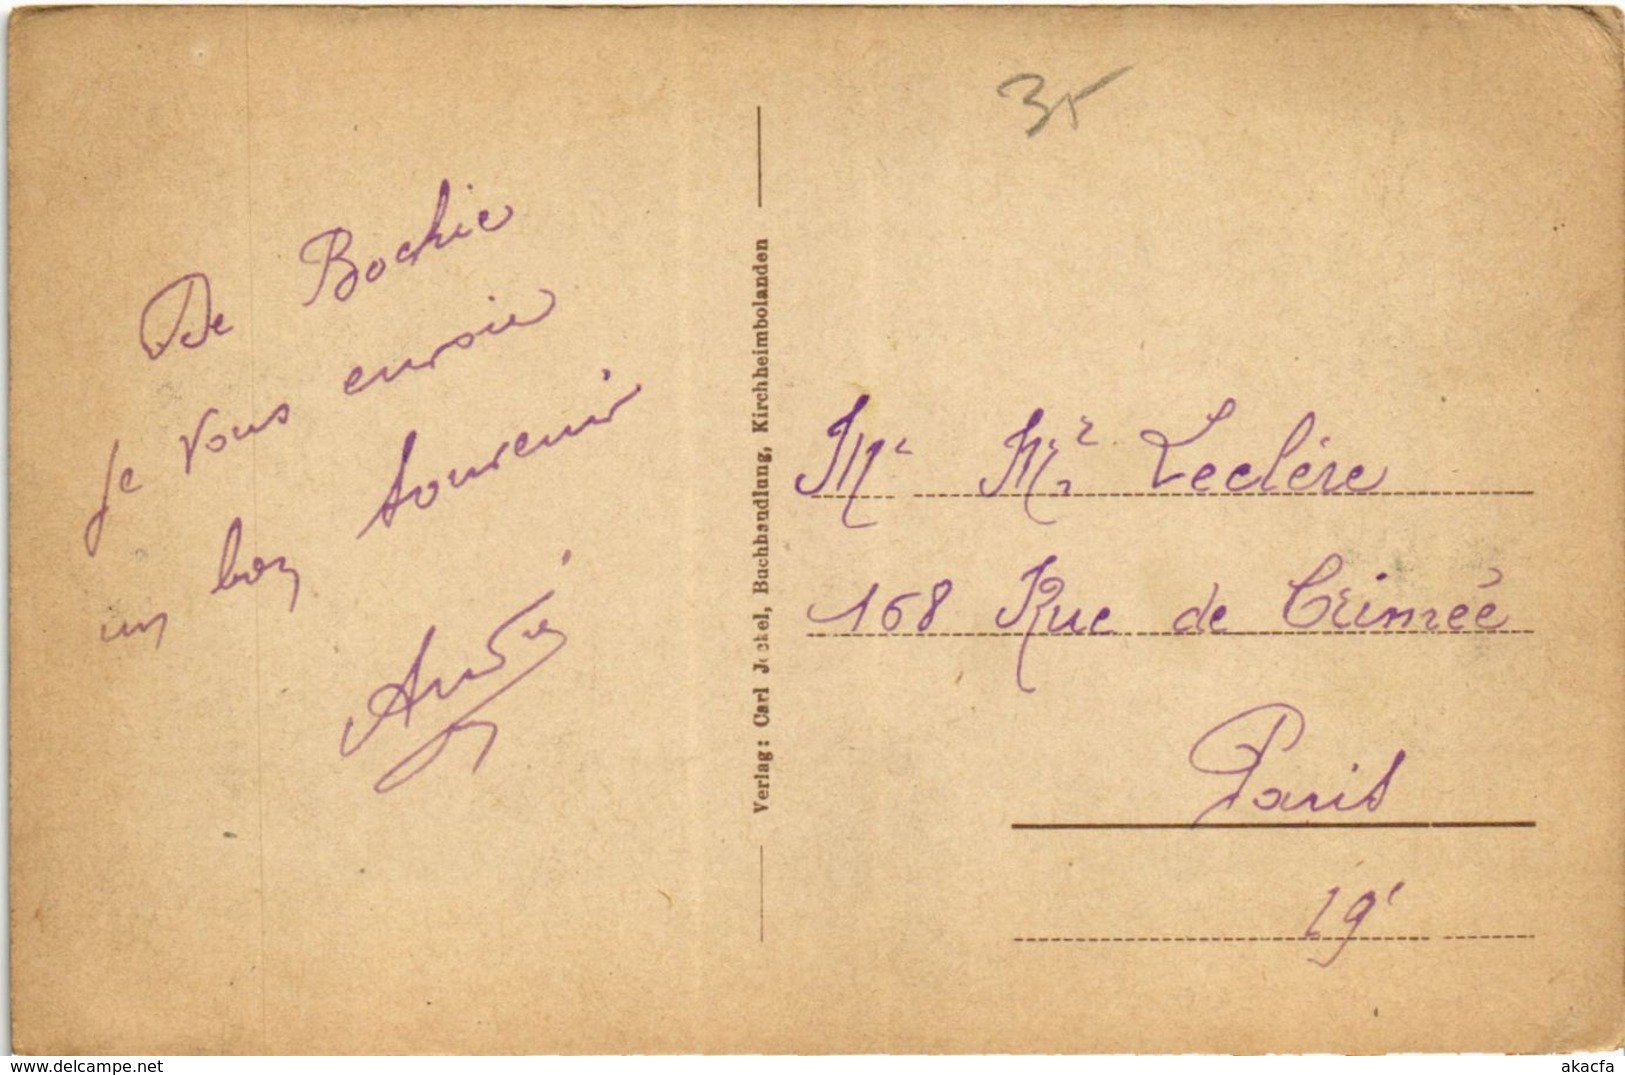 35
De Bochie
je vous envoie
un bon souvenir
André
Verlag: Carl Jockel, Buchhandlung, Kirchheimbolanden
Me Mr Leclére
168 Rue de Crimée
Paris
19e
www.delcampe.net
akacfa